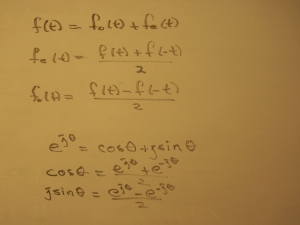 f(t) = fo(t) + fe(t)
fe(t) = f(t) + f(-t) / 2
fo(t) = f(t) - f(-t) / 2
e^jθ = cosθ + jsinθ
cosθ = e^jθ + e^-jθ / 2
jsinθ = e^jθ - e^-jθ / 2